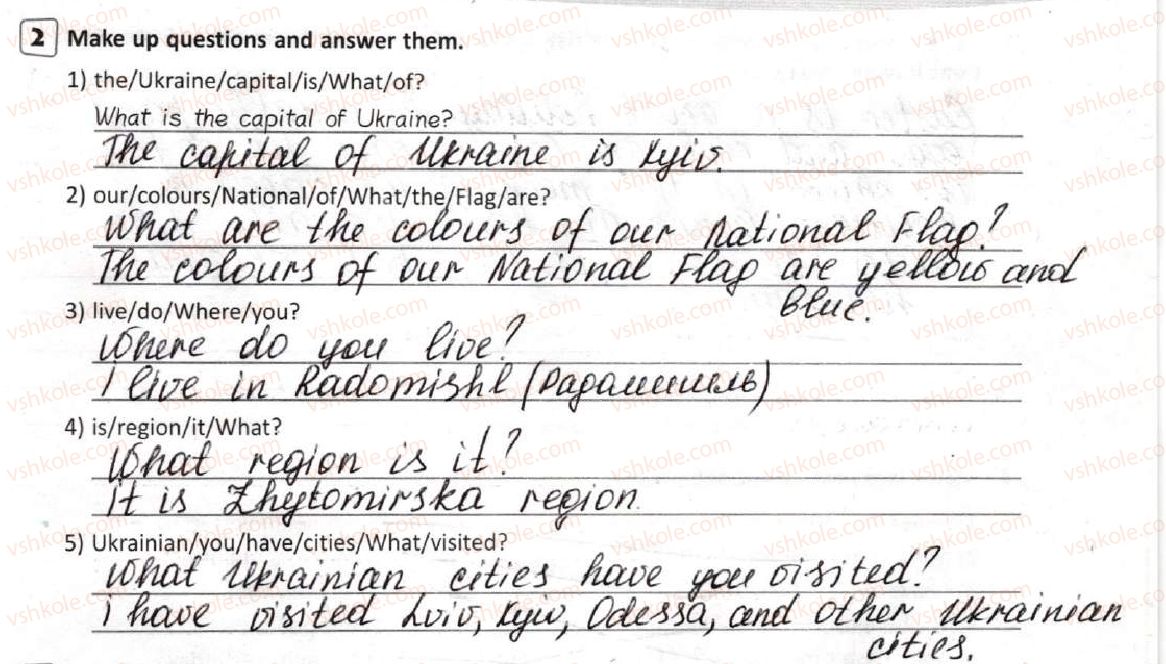 2 Make up questions and answer them.
1) the/Ukraine/capital/is/What/of?
What is the capital of Ukraine?
The capital of Ukraine is Kyiv.
2) our/colours/National/of/What/the/Flag/are?
What are the colours of our National Flag?
The colours of our National Flag are yellow and
blue.
3) live/do/Where/you?
Where do you live?
I live in Radomishl (Радомишль)
4) is/region/it/What?
What region is it?
It is Zhytomirska region.
5) Ukrainian/you/have/cities/What/visited?
What Ukrainian cities have you visited?
I have visited Lviv, Kyiv, Odessa, and other Ukrainian
cities.